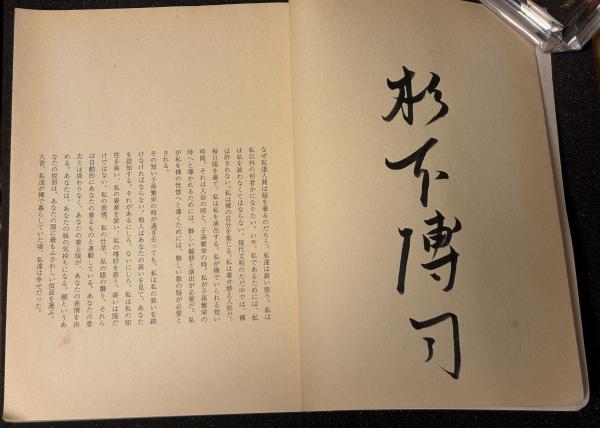 杉本博司
なぜ私達人間は服を着るのだろう。私達は装い装う。私は
私以外の何者かになりたい。いや、私であるためには、私
は私を装わなくてはならない。現代文明のただ中では、裸
は許されない。私は裸の自分を羞じる。私は着せ替え人形だ。
毎日服を着て、私は私を演出する。私が裸でいられる短い
時間、それは入浴の時と、子孫繁栄の時。私が子孫繁栄の
時へと導かれるためには、難しい擬態と演出が必要だ。私
が私を裸の恍惚へと導くためには、夥しい数の服が必要と
される。
その短い子孫繁栄の時が過ぎ去っても、私は私の装いを続
けなければならない。他人はあなたの装いを見て、あなた
を認知する。それがあるにしろ、ないにしろ、私は私の知
性を装い、私の資産を装い、私の嗜好を装う。装いは服だ
けではない。私の表情、私の仕草、私の眼の翳り、それら
は自動的にあなたの着るものと連動している。あなたの意
志とは係わりなく、あなたの着る服が、あなたの表情を決
める。あなたは、あなたの服の気持ちになる。顔というあ
なたの仮面は、あなたの服に最もふさわしい仮面を選ぶ。
大昔、私達が裸で暮らしていた頃、私達は幸せだった。